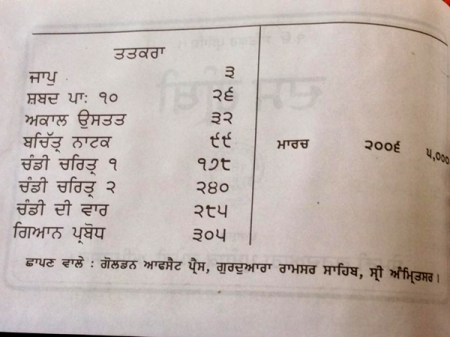 ਤਤਕਰਾ
ਜਾਪੁ ੩
ਸ਼ਬਦ ਪਾਃ ੧੦ ੨੬
ਅਕਾਲ ਉਸਤਤ ੩੨
ਬਚਿੱਤ੍ਰ ਨਾਟਕ ੯੯
ਚੰਡੀ ਚਰਿਤ੍ਰ ੧ ੧੭੮
ਚੰਡੀ ਚਰਿਤ੍ਰ ੨ ੨੪੦
ਚੰਡੀ ਦੀ ਵਾਰ ੨੮੫
ਗਿਆਨ ਪ੍ਰਬੋਧ ੩੦੫
ਮਾਰਚ ੨੦੦੬ ੫,੦੦੦
ਛਾਪਣ ਵਾਲੇ : ਗੋਲਡਨ ਆਫਸੈਟ ਪ੍ਰੈਸ, ਗੁਰਦੁਆਰਾ ਰਾਮਸਰ ਸਾਹਿਬ, ਸ੍ਰੀ ਅੰਮ੍ਰਿਤਸਰ।